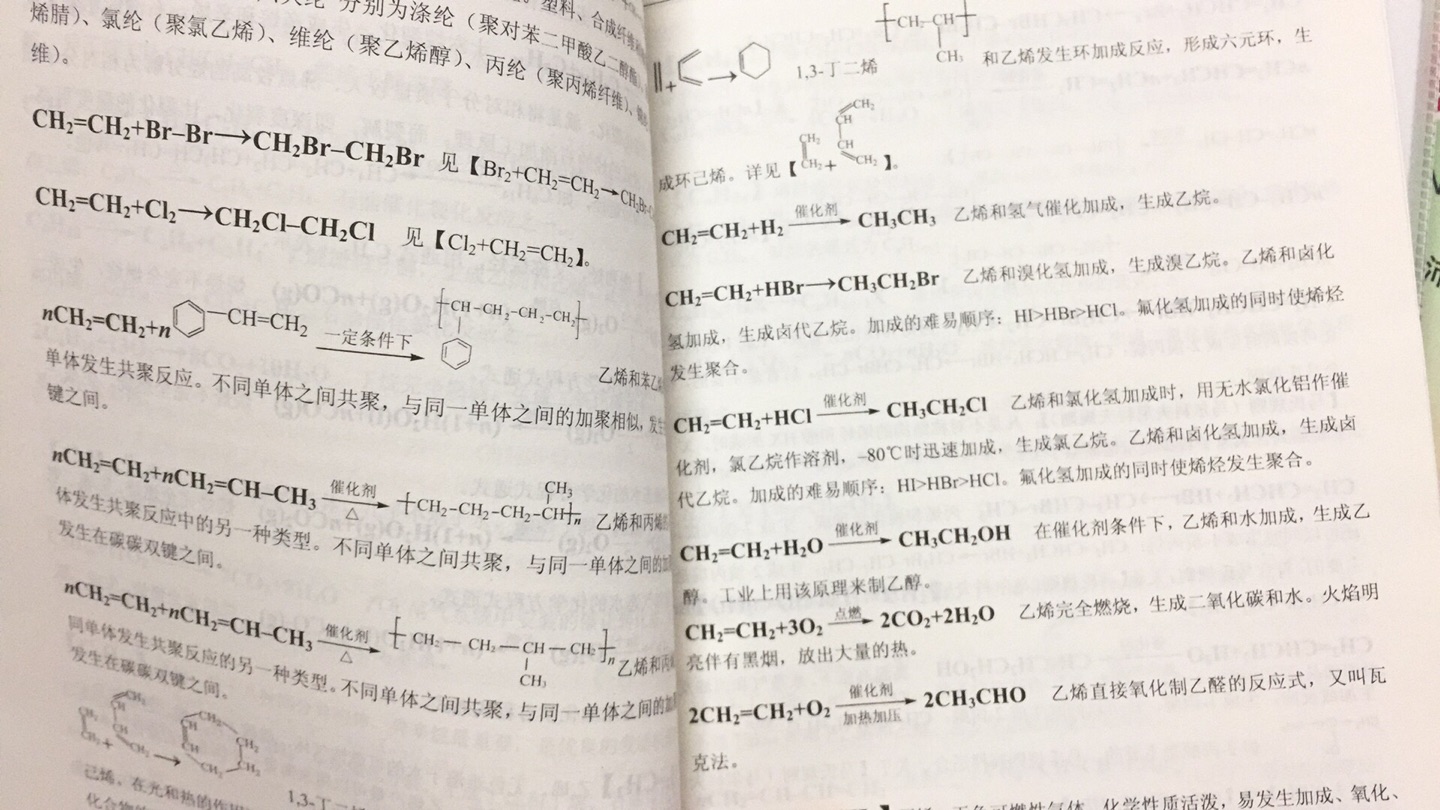 分别为涤纶（聚对苯二甲酸乙二醇酯）、
烯腈）、氯纶（聚氯乙烯）、维纶（聚乙烯醇）、丙纶（聚丙烯纤维）、
维）。
CH₂=CH₂+Br–Br→CH₂Br–CH₂Br 见【Br₂+CH₂=CH₂→
CH₂=CH₂+Cl₂→CH₂Cl–CH₂Cl 见【Cl₂+CH₂=CH₂】。
nCH₂=CH₂+n CH=CH₂ 一定条件下 [CH–CH₂–CH₂–CH₂] 乙烯和苯乙
单体发生共聚反应。不同单体之间共聚，与同一单体之间的加聚相似，发生
键之间。
nCH₂=CH₂+nCH₂=CH–CH₃ 催化剂 △ [CH₂–CH₂–CH₂–CH]n CH₃ 乙烯和丙烯
体发生共聚反应中的另一种类型。不同单体之间共聚，与同一单体之间的加
发生在碳碳双键之间。
nCH₂=CH₂+nCH₂=CH–CH₃ 催化剂 △ [CH₂—CH₂—CH—CH₂]n CH₃ 乙烯和丙
同单体发生共聚反应的另一种类型。不同单体之间共聚，与同一单体之间的加
发生在碳碳双键之间。
CH₂ CH CH CH₂ CH₂ CH₂ + → CH₂ CH CH CH₂ CH₂ CH₂
1,3-丁二
己烯、在光和热的作用
[CH₂ CH] CH₃
+ → 1,3-丁二烯 和乙烯发生环加成反应，形成六元环，生
成环己烯。详见【CH₂ CH₂ + CH₂ CH CH CH₂】。
CH₂=CH₂+H₂ 催化剂→ CH₃CH₃ 乙烯和氢气催化加成，生成乙烷。
CH₂=CH₂+HBr→CH₃CH₂Br 乙烯和溴化氢加成，生成溴乙烷。乙烯和卤化
氢加成，生成卤代乙烷。加成的难易顺序：HI>HBr>HCl。氟化氢加成的同时使烯烃
发生聚合。
CH₂=CH₂+HCl 催化剂→ CH₃CH₂Cl 乙烯和氯化氢加成时，用无水氯化铝作催
化剂，氯乙烷作溶剂，–80℃时迅速加成，生成氯乙烷。乙烯和卤化氢加成，生成卤
代乙烷。加成的难易顺序：HI>HBr>HCl。氟化氢加成的同时使烯烃发生聚合。
CH₂=CH₂+H₂O 催化剂→ CH₃CH₂OH 在催化剂条件下，乙烯和水加成，生成乙
醇。工业上用该原理来制乙醇。
CH₂=CH₂+3O₂ 点燃→ 2CO₂+2H₂O 乙烯完全燃烧，生成二氧化碳和水。火焰明
亮伴有黑烟，放出大量的热。
2CH₂=CH₂+O₂ 催化剂 加热加压→ 2CH₃CHO 乙烯直接氧化制乙醛的反应式，又叫瓦
克法。
可燃性气体，化学性质活泼，易发生加成、氧化、